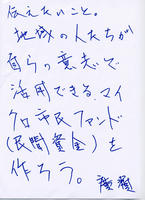 伝えたいこと。
地域の人たちが
自らの意志で
活用できる、マイ
クロ市民ファンド
(民間資金)を
作ろう。